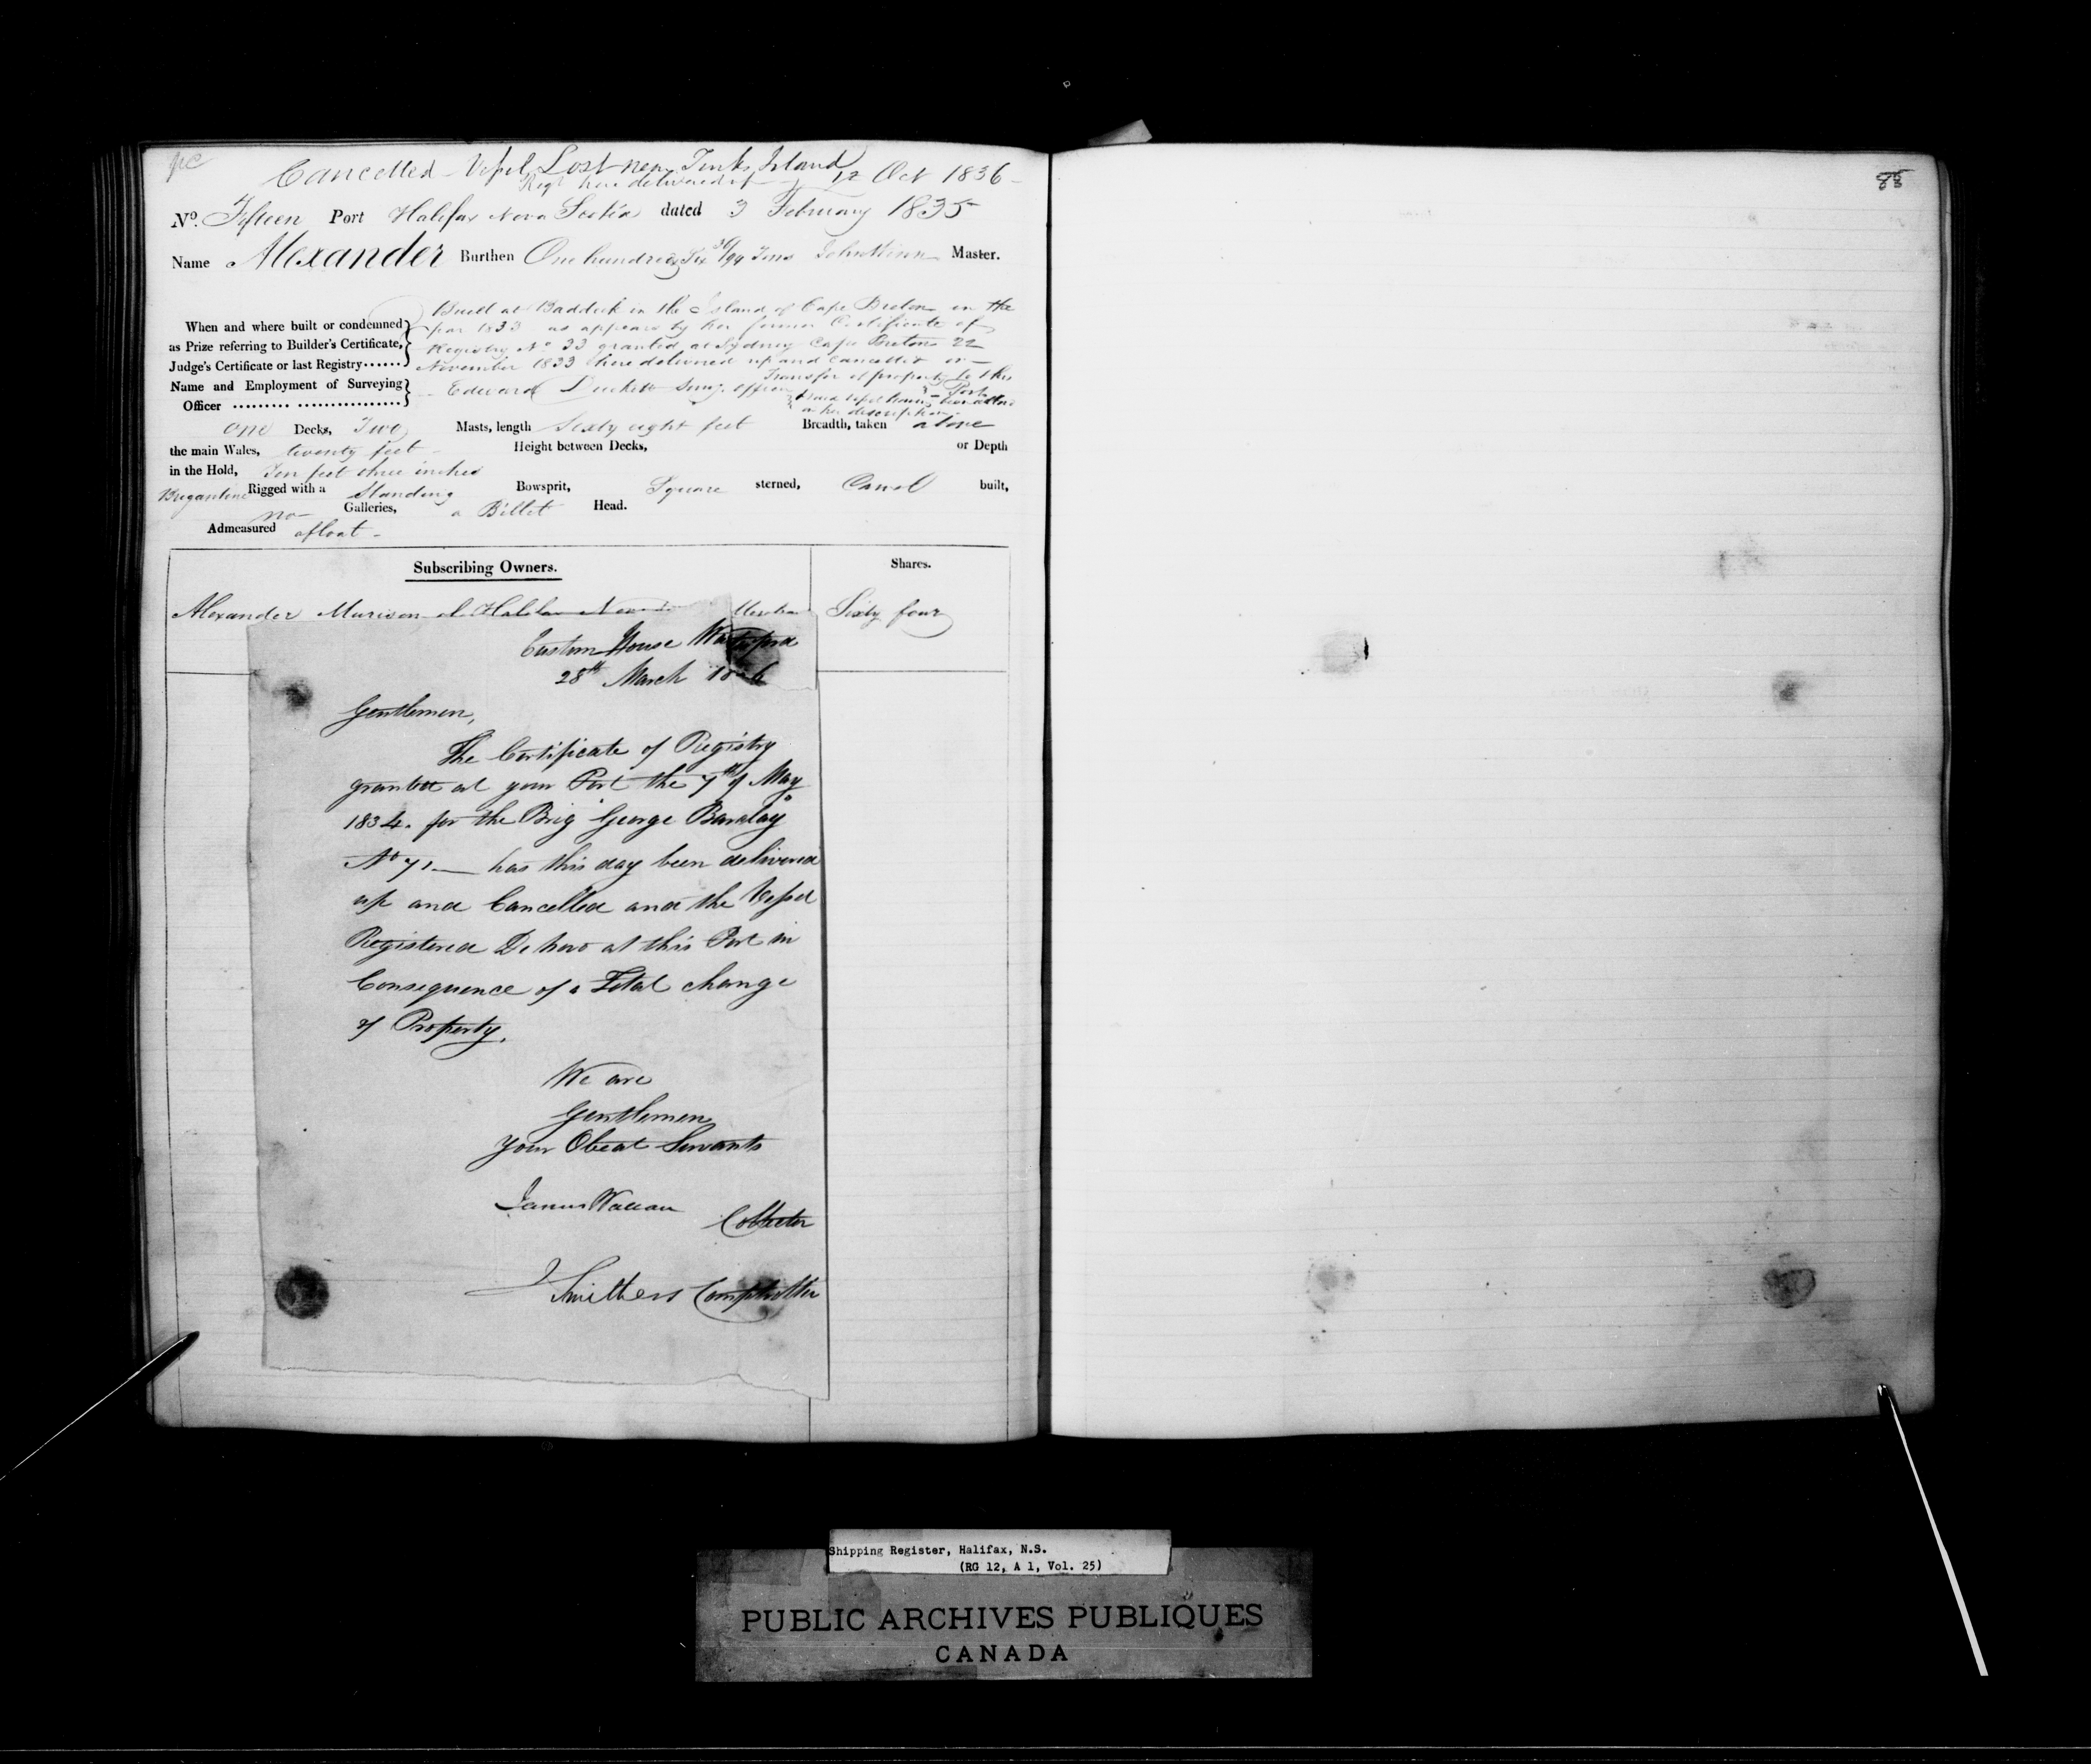 pc
Cancelled Vessel Lost near Turks Island
Regr here delivered up 12 Oct 1836
No. Fifteen Port Halifax Nova Scotia dated 3 February 1835
Name Alexander Burthen One hundred & Six 30/94 Tons John Master.
Built at Baddeck in the Island of Cape Breton in the
When and where built or condemned year 1833 as appears by her former Certificate of
as Prize referring to Builder's Certificate, Registry No 33 granted at Sydney Cape Breton 22
Judge's Certificate or last Registry...... November 1833 here delivered up and cancelled on
Transfer of property to this Port
Name and Employment of Surveying Edward Duckett Survg. officer
Officer
in her description.
One Decks, Two Masts, length Sixty eight feet Breadth, taken above
the main Wales, twenty feet Height between Decks, or Depth
in the Hold, Ten feet three inches
Brigantine Rigged with a Standing Bowsprit, Square sterned, Carvel built,
no Galleries, a Billet Head.
Admeasured afloat
Subscribing Owners. Shares.
Alexander Murison of Halifax Sixty four
Custom House Waterford
28th March 1836
Gentlemen,
The Certificate of Registry
granted at your Port the 7th of May
1834. for the Brig "George Barclay"
No 71. has this day been delivered
up and Cancelled and the Vessel
Registered De Novo at this Port in
Consequence of a Total change
of Property.
We are
Gentlemen
Your Obedt Servants
James Collector
Smithers Comptroller
85
Shipping Register, Halifax, N.S.
(RG 12, A 1, Vol. 25)
PUBLIC ARCHIVES PUBLIQUES
CANADA